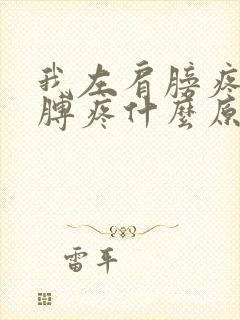 我左肩膀疼
膊疼什麼原
雷平